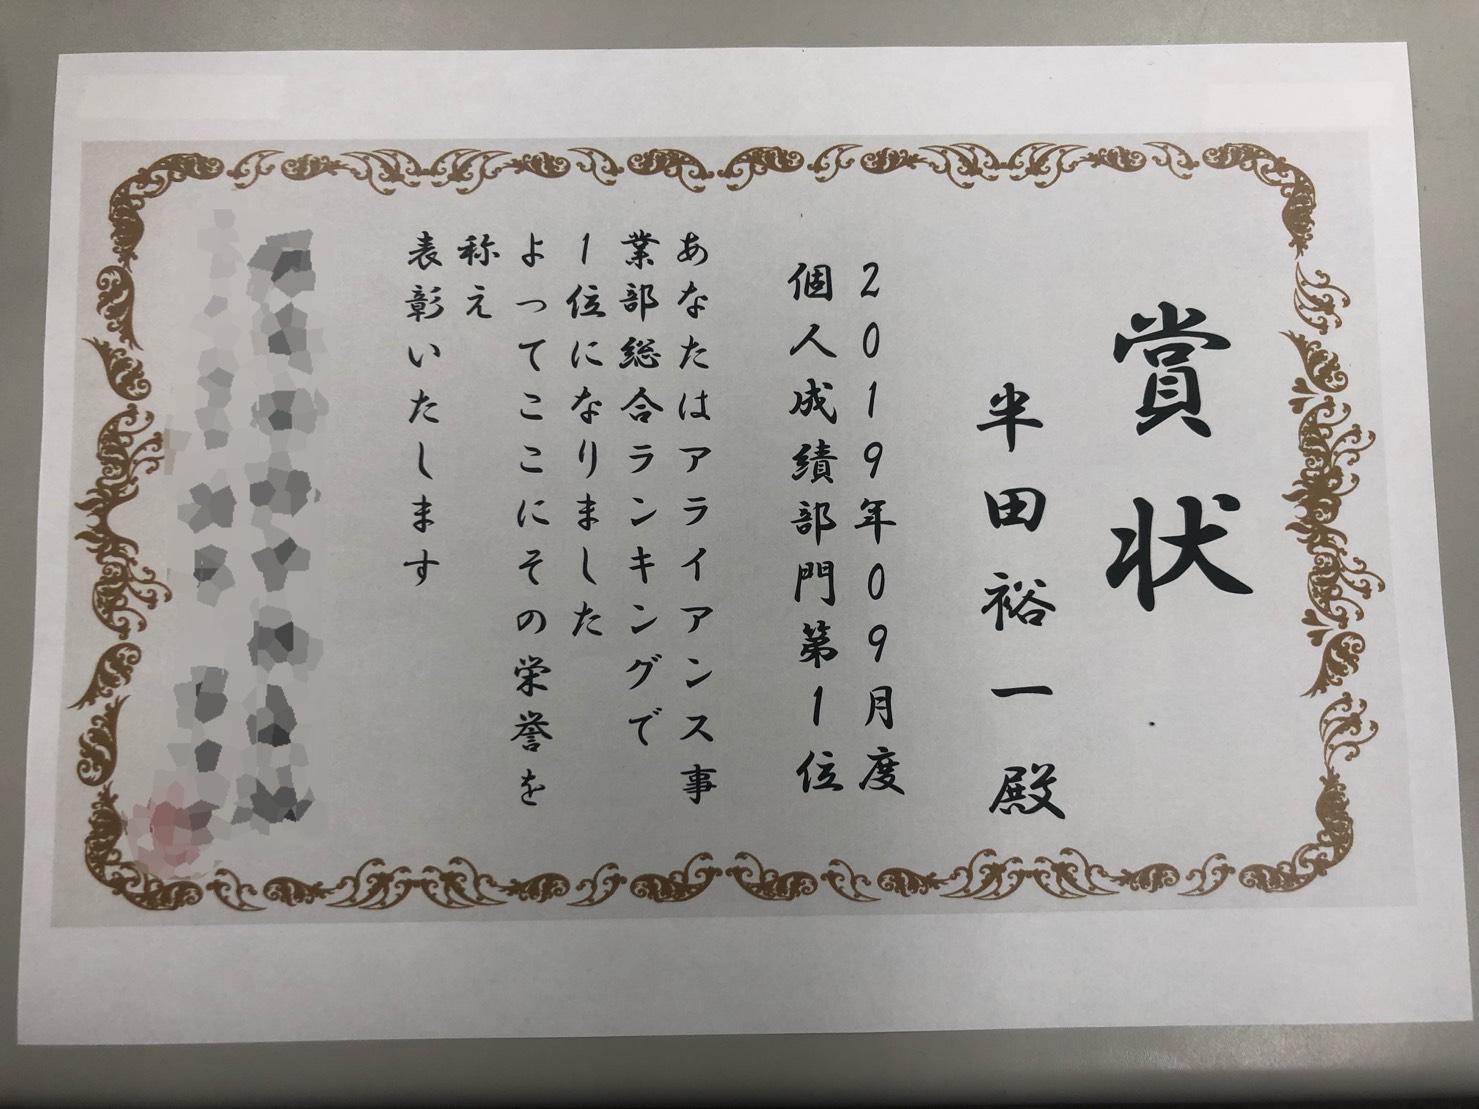 賞状
半田裕一殿
2019年09月度
個人成績部門第1位
あなたはアライアンス事
業部総合ランキングで
1位になりました
よってここにその栄誉を
称え
表彰いたします